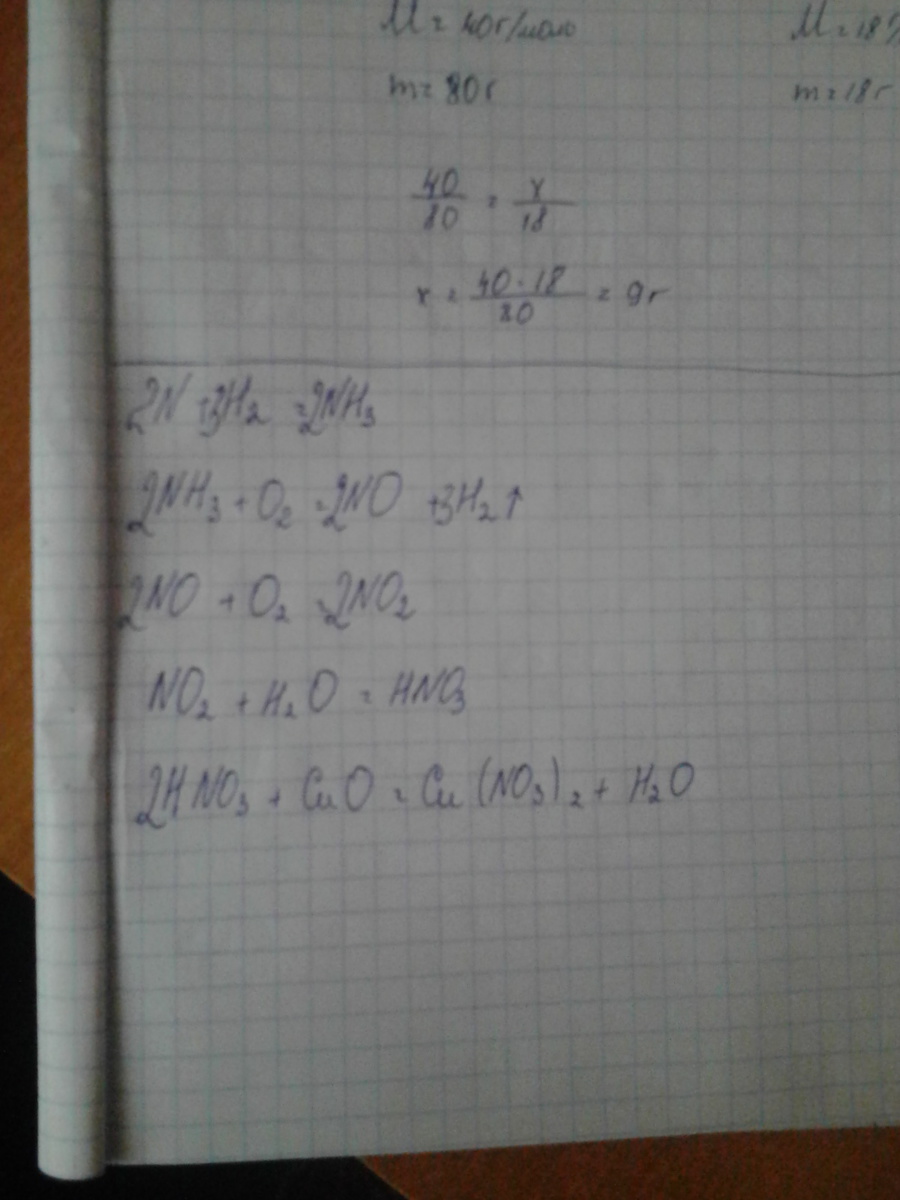 M = 40г/моль M = 18г/
m = 80г m = 18г
40/80 = x/18
x = 40·18/80 = 9г
2N + 3H₂ = 2NH₃
2NH₃ + O₂ = 2NO + 3H₂↑
2NO + O₂ = 2NO₂
NO₂ + H₂O = HNO₃
2HNO₃ + CuO = Cu(NO₃)₂ + H₂O